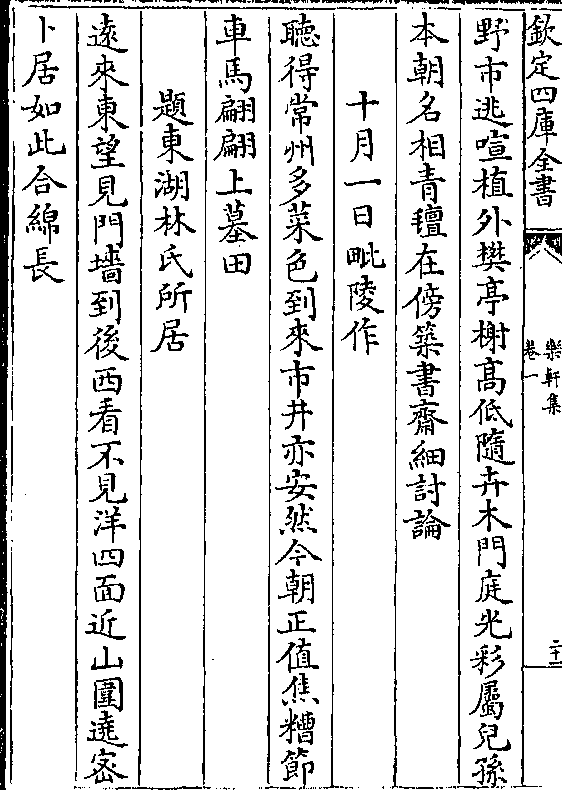 欽定四庫全書
樂軒集
卷一
二十一
野市逃喧植外樊亭榭髙低隨卉木門庭光彩屬兒孫
本朝名相青氊在傍築書齋細討論
十月一日毗陵作
聴得常州多菜色到來市井亦安然今朝正值焦糟節
車馬翩翩上墓田
題東湖林氏所居
逺來東望見門墻到後西看不見洋四面近山圍遶宻
卜居如此合綿長